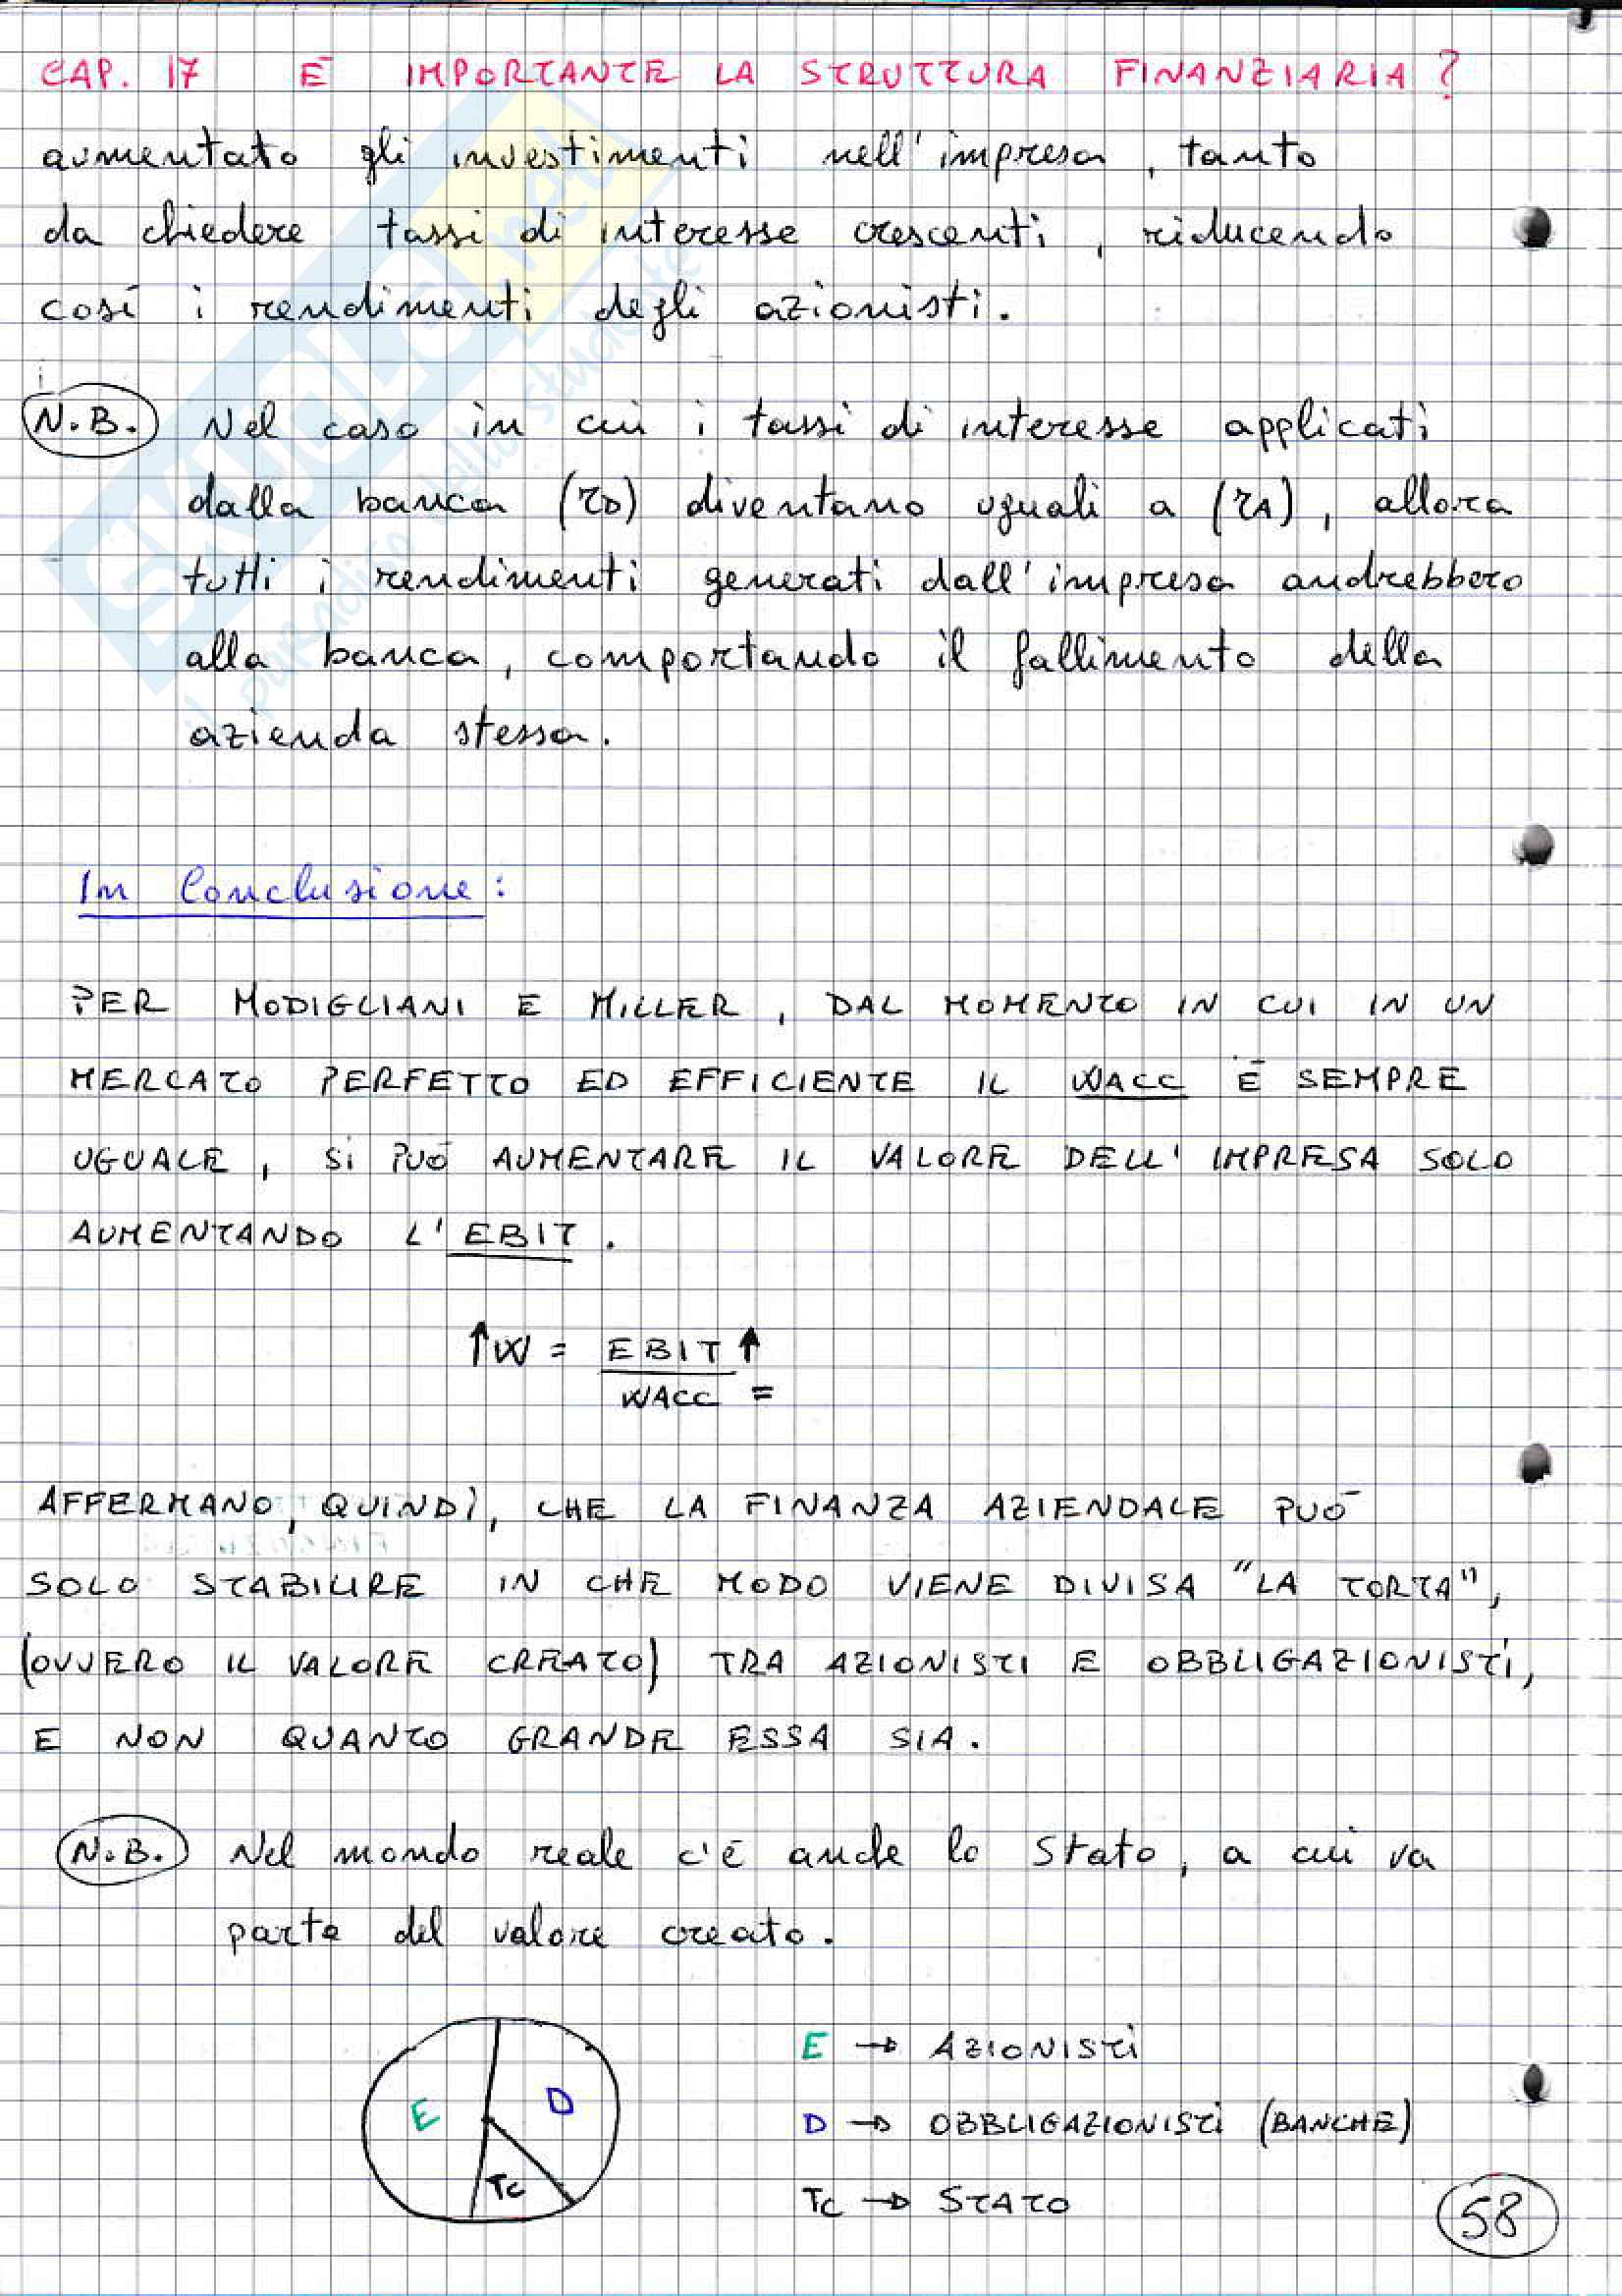 CAP. 17 È IMPORTANTE LA STRUTTURA FINANZIARIA ?
aumentato gli investimenti nell'impresa, tanto
da chiedere tassi di interesse crescenti, riducendo
così i rendimenti degli azionisti.
N.B. Nel caso in cui i tassi di interesse applicati
dalla banca (rD) diventano uguali a (rA), allora
tutti i rendimenti generati dall'impresa andrebbero
alla banca, comportando il fallimento della
azienda stessa.
In Conclusione:
PER MODIGLIANI E MILLER, DAL MOMENTO IN CUI IN UN
MERCATO PERFETTO ED EFFICIENTE IL WACC È SEMPRE
UGUALE, SI PUÒ AUMENTARE IL VALORE DELL'IMPRESA SOLO
AUMENTANDO L'EBIT.
↑W = EBIT↑
WACC =
AFFERMANO, QUINDI, CHE LA FINANZA AZIENDALE PUÒ
SOLO STABILIRE IN CHE MODO VIENE DIVISA "LA TORTA",
(OVVERO IL VALORE CREATO) TRA AZIONISTI E OBBLIGAZIONISTI,
E NON QUANTO GRANDE ESSA SIA.
N.B. Nel mondo reale c'è anche lo Stato, a cui va
parte del valore creato.
E D Tc
E → AZIONISTI
D → OBBLIGAZIONISTI (BANCHE)
Tc → STATO
58
SKUOLA.net
il paradiso dello studente